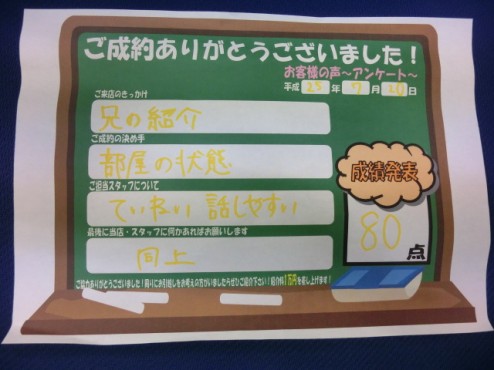 ご成約ありがとうございました!
お客様の声～アンケート～
平成 25 年 7 月 20 日
ご来店のきっかけ
兄の紹介
ご成約の決め手
部屋の状態
ご担当スタッフについて
ていねい 話しやすい
最後に当店・スタッフに何かあればお願いします
同上
成績発表
80点
ご協力ありがとうございました!周りにお引越しをお考えの方がいましたらぜひご紹介下さい!紹介料1万円を差し上げます!